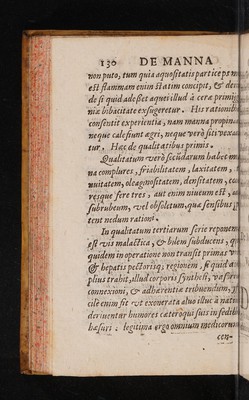 130 DE MANNA
non puto, tum quia aquositatis particeps
est flammam enim statim concipit, &
de si quid adesset aquei illud à cera primig
niæ bibacitate exsugeretur. His rationib
consentit experientia, nam manna propin
neque calefiunt agri, neque verò siti vexan
tur. Hæc de qualitatibus primis.
Qualitatum verò secũdarum habet m
na complures, friabilitatem, laxitatem,
nuitatem, oleaginositatem, densitatem, co
resque fere tres, aut enim niueum est, au
subrubeum, vel obsoletum, quæ sensibus p
tent nedum rationi.
In qualitatum tertiarum serie reponen
est vis malactica, & bilem subducens, q
quidem in operatione non transit primas v
& hepatis pectorisq; regionem, si quid a
plius trahit, illud corporis synthesi,
connexioni, & adhærentiæ tribuendum,
cile enim sit vt exonerata aluo illuc à natu
deriuentur humores cæteroqui suis in sedib
hæsuri: legitima ergo omnium medicorum
con-